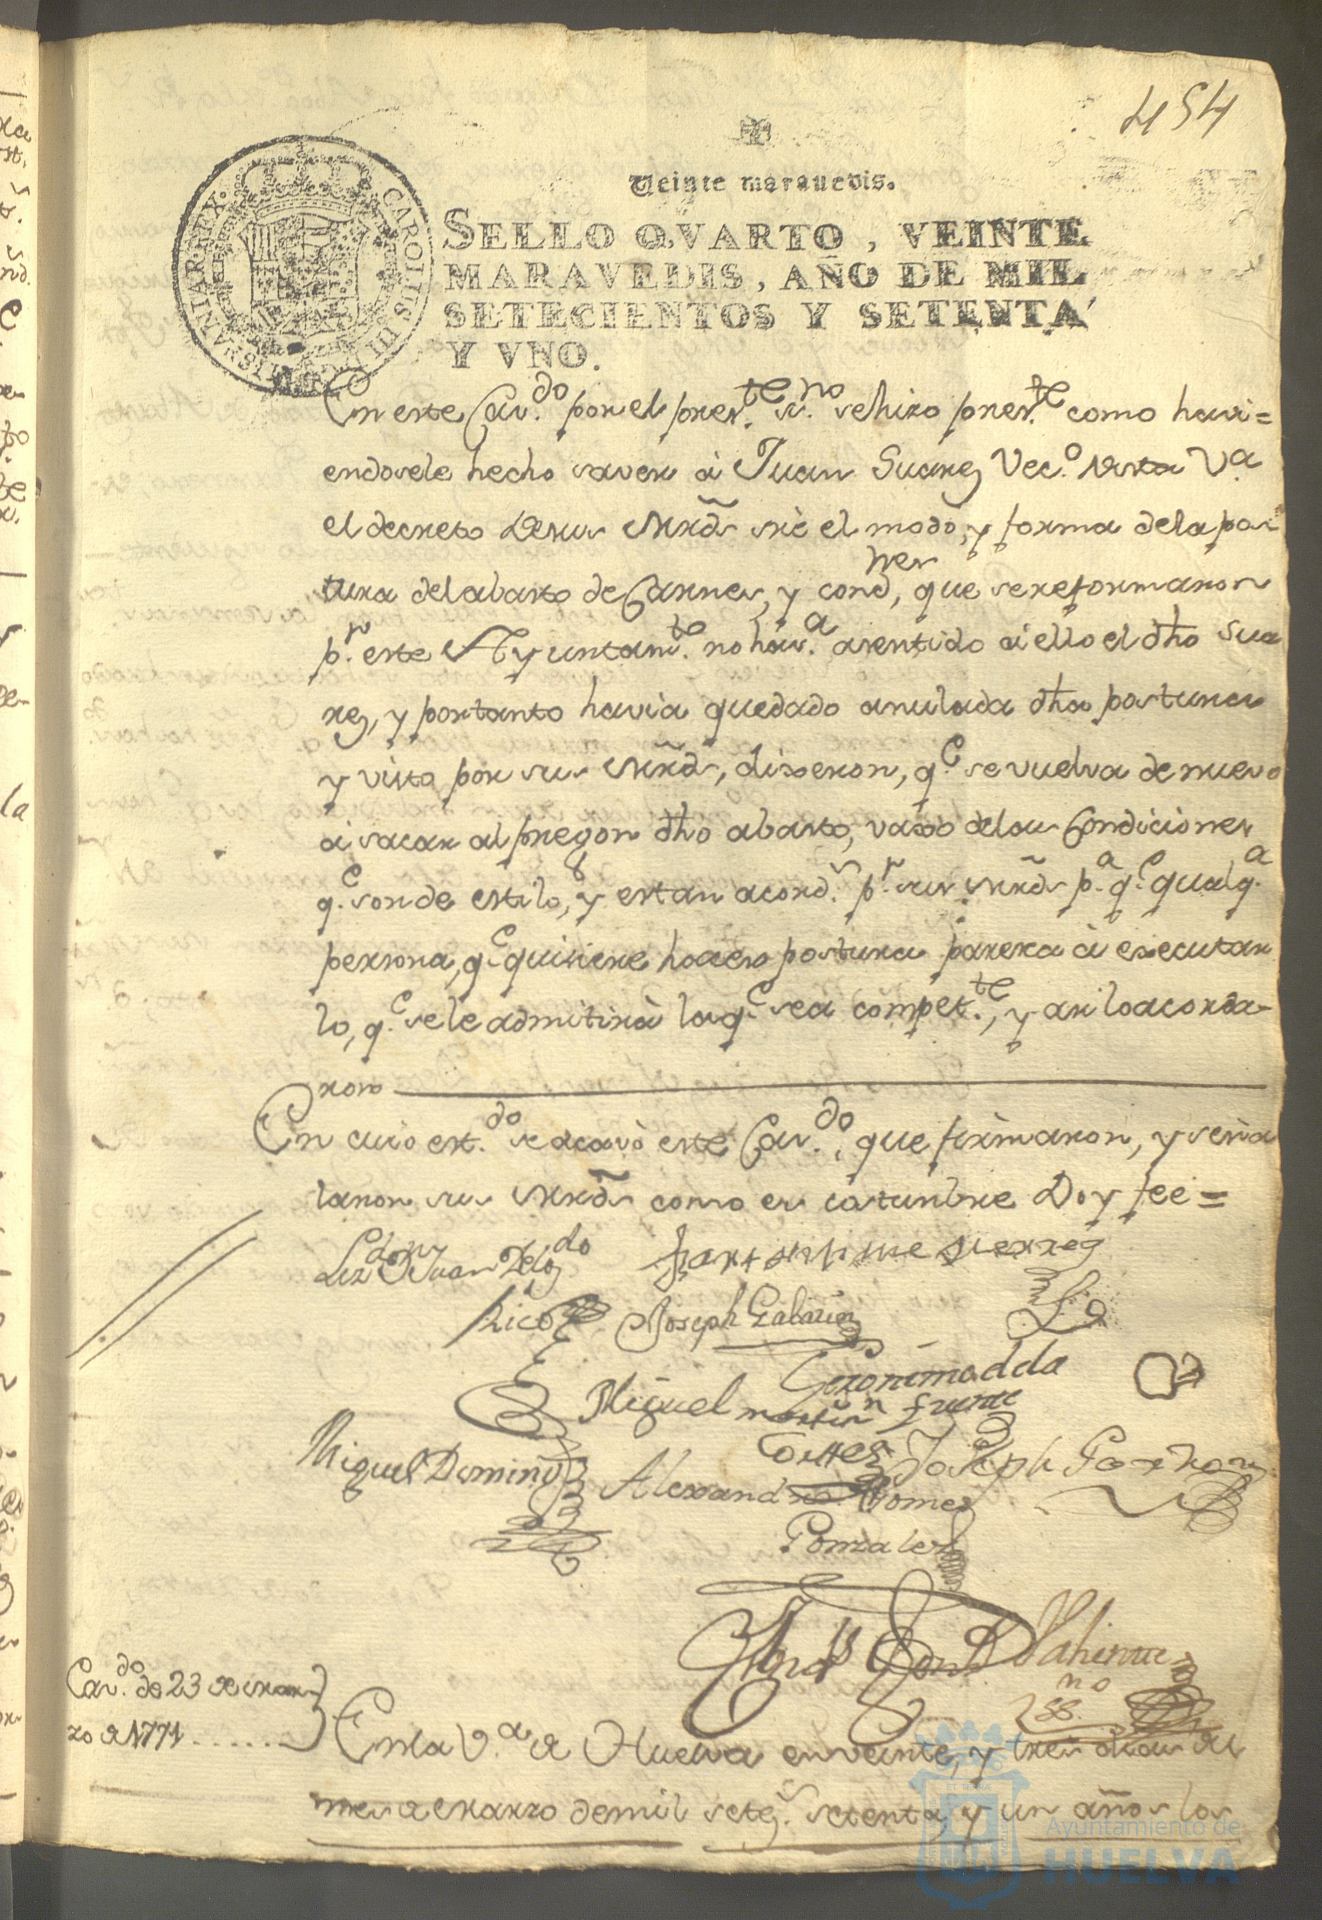 454
Veinte marauedis.
SELLO QVARTO, VEINTE
MARAVEDIS, AÑO DE MIL
SETECIENTOS Y SETENTA
Y VNO.
CAROLUS III D G HISPANIAR REX
En este Cav.do por el pres.te ss.no se hizo pres.te como havi=
endosele hecho saver â Juan Suarez Vec.o desta V.a
el decreto de sus mrds sre el modo, y forma de la pos
tura del abasto de Carnes, y condnes, que se reformaron
p.r este Ayuntam.to no hav.a asentido â ello el dho Sua
rez, y por tanto havia quedado anulada dha postura
y visto por sus mrds, dixeron, q.e se vuelva de nuevo
â sacar al pregon dho abasto, vaxo de las Condiciones
q.e son de estilo, y estan acord.s p.r sus mrds p.a q.e qualq.a
persona, q.e quisiere hacer postura paresca â executar
lo, q.e se le admitirà la q.e sea compet.te, y asi lo acorda-
ron
En cuio est.do se acavò este Cav.do, que firmaron, y seña
laron sus mrds como es costumbre Doy fee=
Lizdo Dn Juan Delgdo
Rico
Joseph Gabria
Geronimo de la
fuente
Miguel martin
Cortes
Miguel Doming
Alexandro Gomez
Gonzalez
Joseph Garzon
ss.no
Cav.do de 23 de mar
zo de 1771 ......
En la V.a de Huelva en veinte, y tres dias del
mes de marzo de mil setez.s setenta, y un años los
Ayuntamiento de
HUELVA